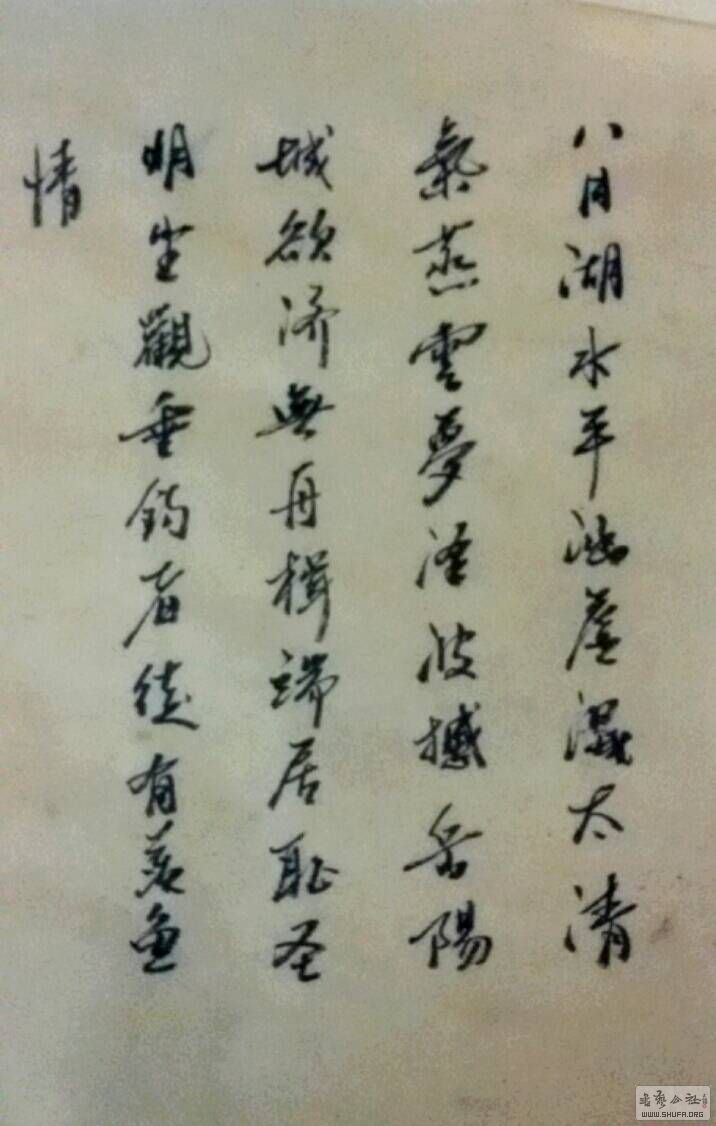 八月湖水平涵虛混太清
氣蒸雲夢澤波撼岳陽
城欲济無舟楫端居耻圣
明坐觀垂钓者徒有羡鱼
情
WWW.SHUFA.ORG